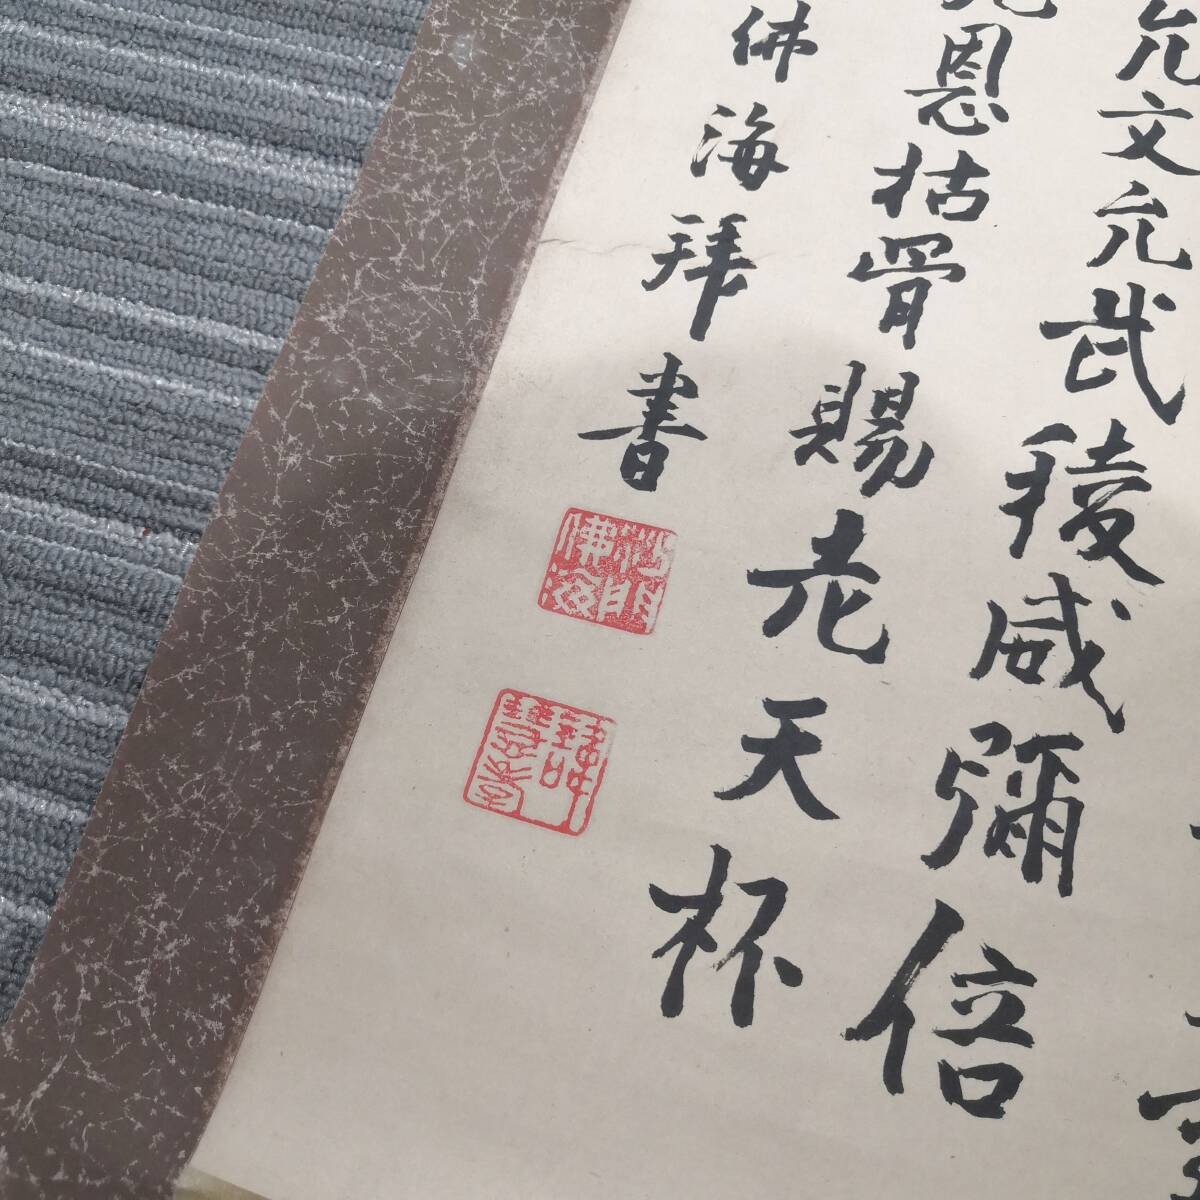 允文允武稜威彌倍
恩枯骨賜老天杯
佛海拜書
沙門佛海